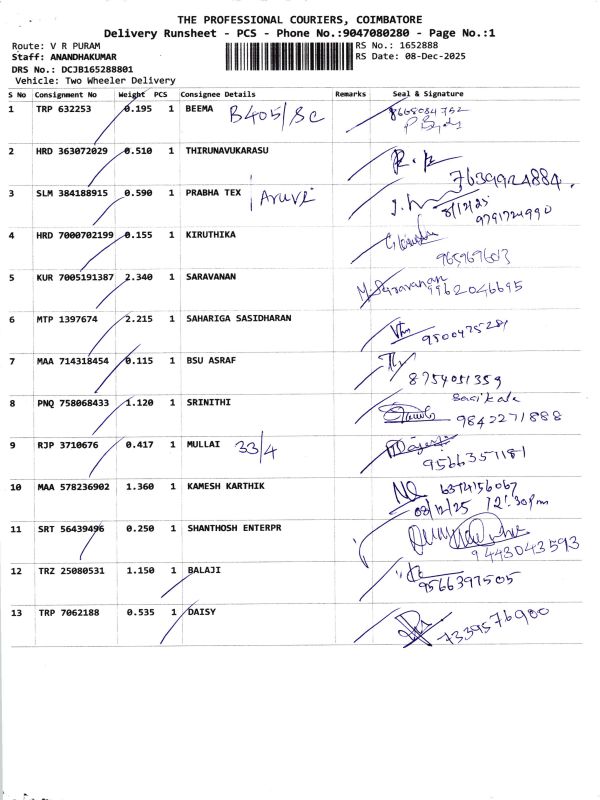 THE PROFESSIONAL COURIERS, COIMBATORE
Delivery Runsheet - PCS - Phone No.:9047080280 - Page No.:1
Route: V R PURAM RS No.: 1652888
Staff: ANANDHAKUMAR RS Date: 08-Dec-2025
DRS No.: DCJB165288801
Vehicle: Two Wheeler Delivery
S No Consignment No Weight PCS Consignee Details Remarks Seal & Signature
1 TRP 632253 0.195 1 BEEMA B405/BC 8668084752
2 HRD 363072029 0.510 1 THIRUNAVUKARASU R. K
7639924884.
3 SLM 384188915 0.590 1 PRABHA TEX Aruvi 8/12/25
9791724990
4 HRD 7000702199 0.155 1 KIRUTHIKA
9659696013
5 KUR 7005191387 2.340 1 SARAVANAN M. Saravanan
9962046695
6 MTP 1397674 2.215 1 SAHARIGA SASIDHARAN
9500475281
7 MAA 714318454 0.115 1 BSU ASRAF
8754051359
8 PNQ 758068433 1.120 1 SRINITHI Sasikala
9842271888
9 RJP 3710676 0.417 1 MULLAI 33/4
9566357181
10 MAA 578236902 1.360 1 KAMESH KARTHIK 6374156067
08/12/25 12:30pm
11 SRT 56439496 0.250 1 SHANTHOSH ENTERPR
9443043593
12 TRZ 25080531 1.150 1 BALAJI
9566397505
13 TRP 7062188 0.535 1 DAISY
7339576980